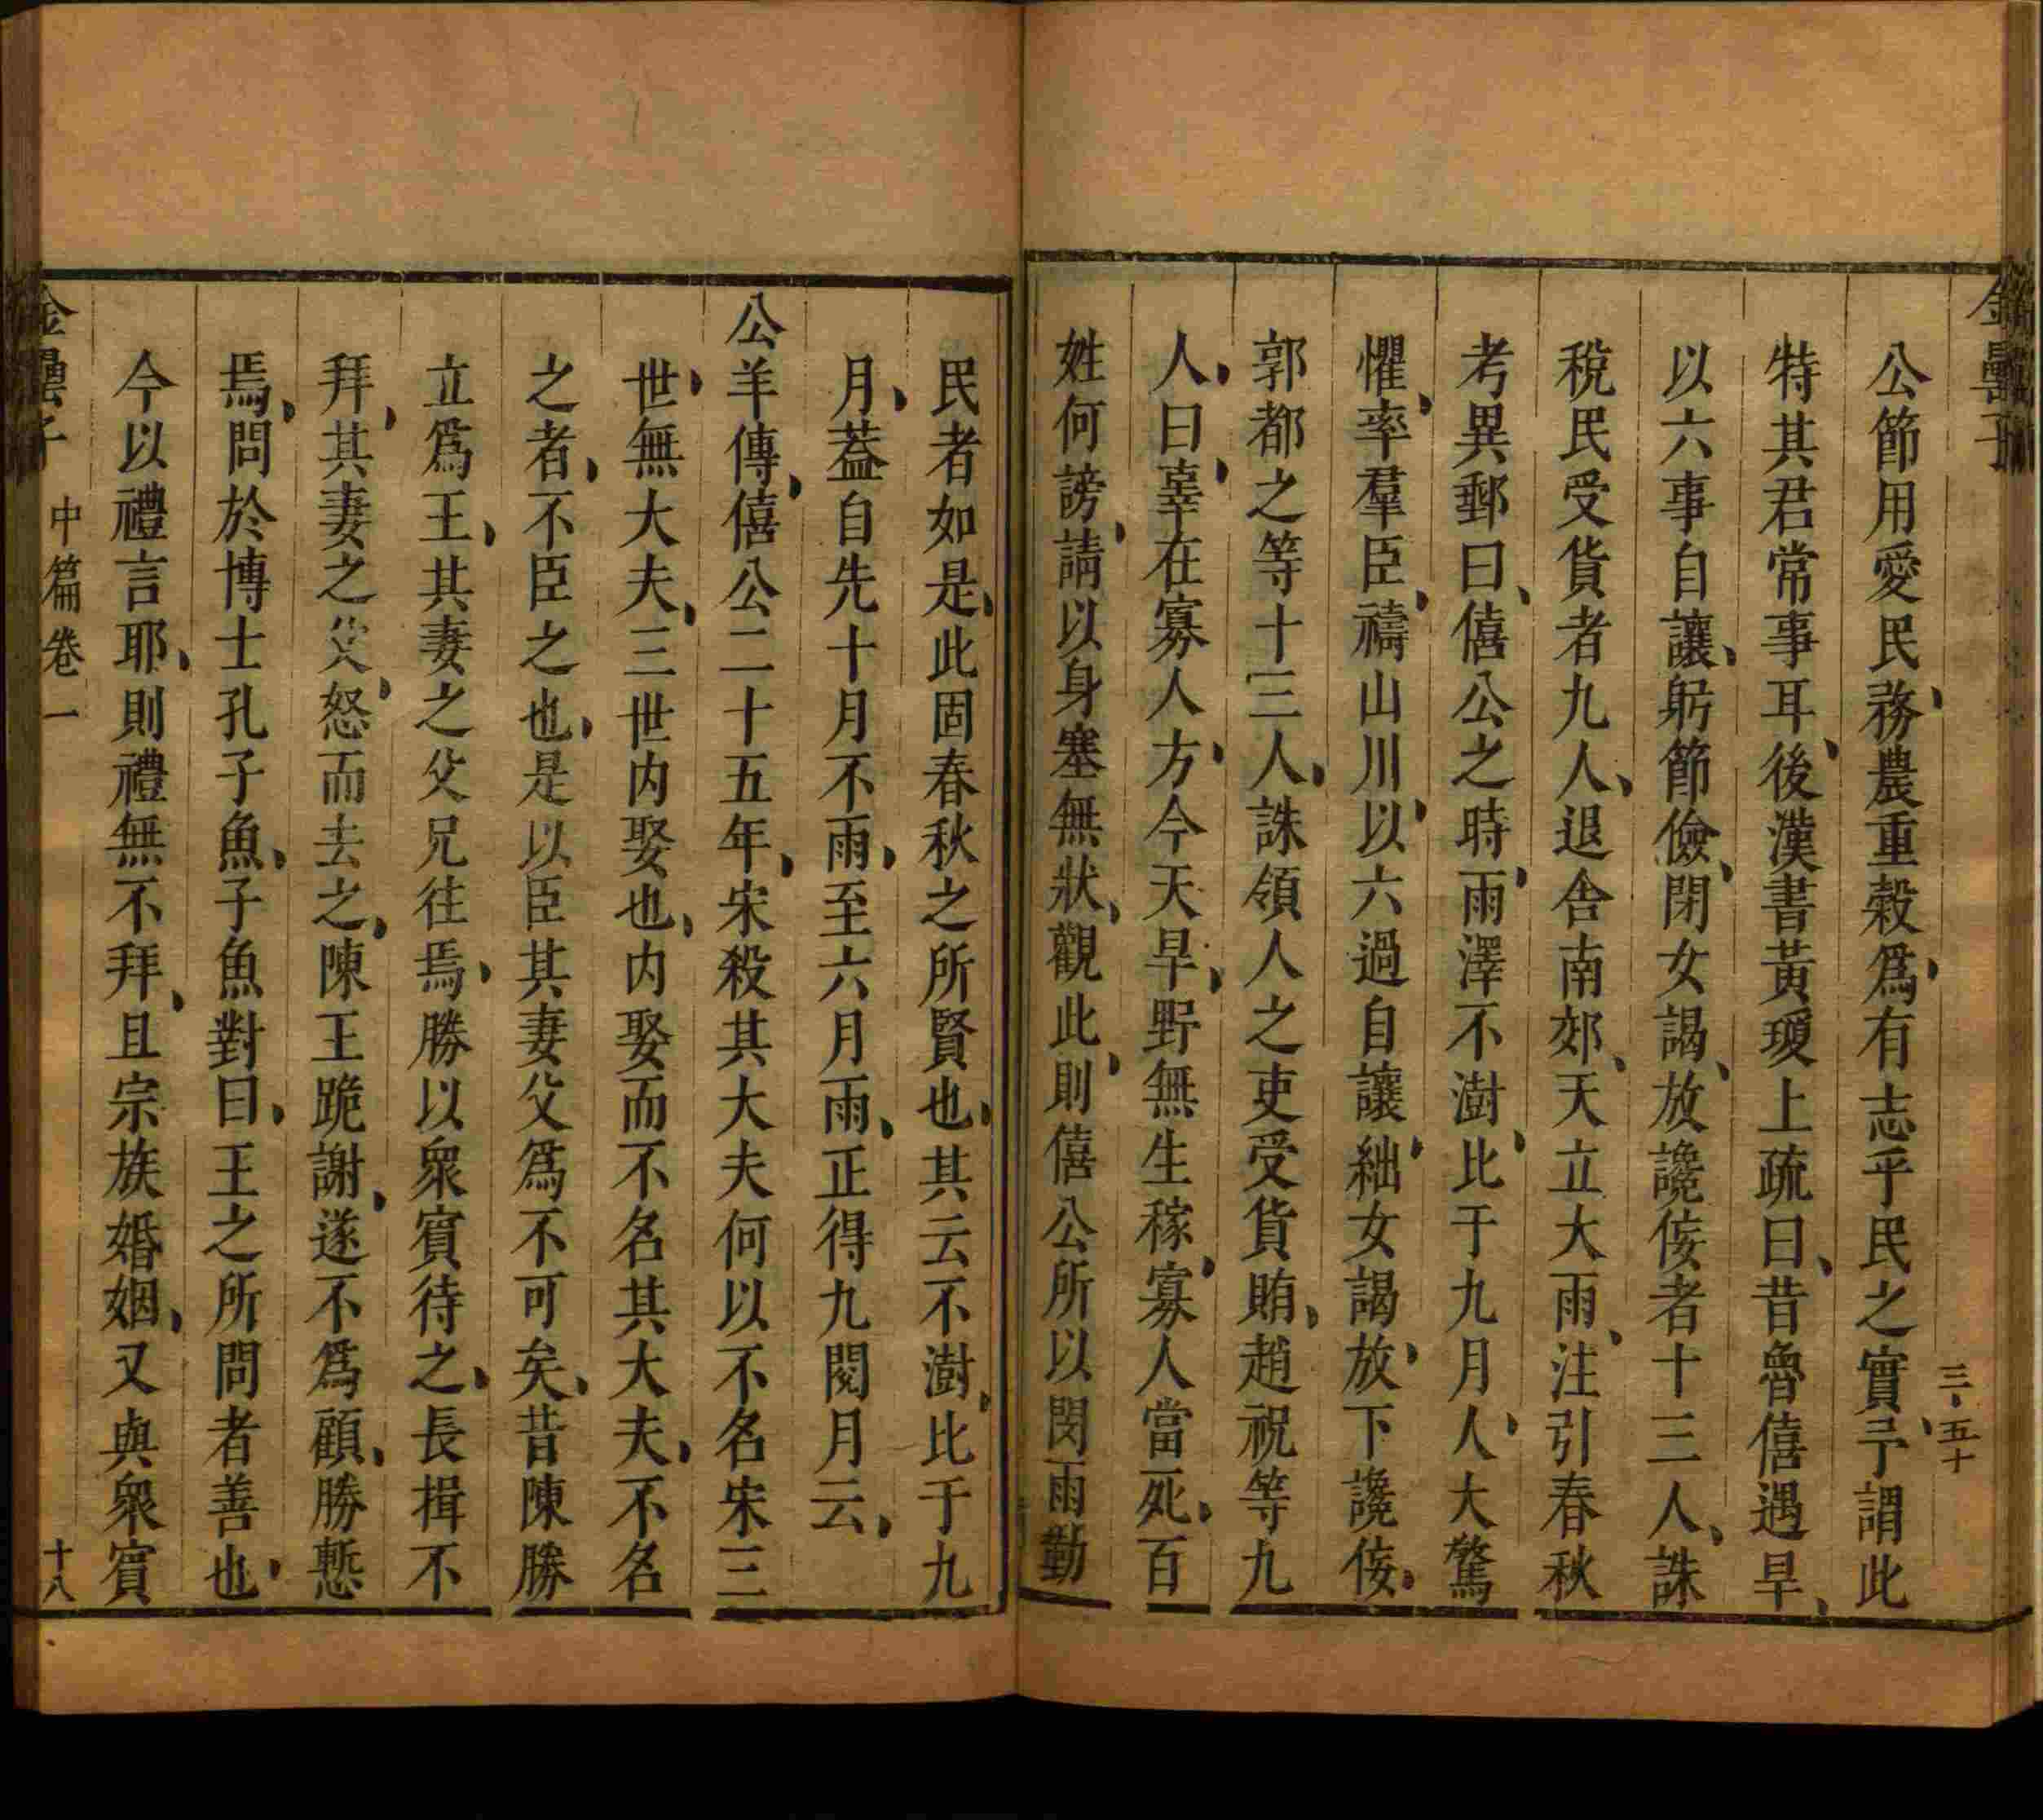 金罍子
三五十
公節用愛民務農重穀爲有志乎民之實予謂此
特其君常事耳後漢書黃瓊上疏曰昔魯僖遇旱
以六事自讓躬節儉閉女謁放讒佞者十三人誅
稅民受貨者九人退舍南郊天立大雨注引春秋
考異郵曰僖公之時雨澤不澍比于九月人大驚
懼率羣臣禱山川以六過自讓絀女謁放下讒佞
郭都之等十三人誅領人之吏受貨賄趙祝等九
人曰辜在寡人方今天旱野無生稼寡人當死百
姓何謗請以身塞無狀觀此則僖公所以閔雨勤
民者如是此固春秋之所賢也其云不澍比于九
月葢自先十月不雨至六月雨正得九閱月云
公羊傳僖公二十五年宋殺其大夫何以不名宋三
世無大夫三世内娶也内娶而不名其大夫不名
之者不臣之也是以臣其妻父爲不可矣昔陳勝
立爲王其妻之父兄往焉勝以衆賓待之長揖不
拜其妻之父怒而去之陳王跪謝遂不爲顧勝慙
焉問於博士孔子魚子魚對曰王之所問者善也
今以禮言耶則禮無不拜且宗族婚姻又與衆賓
金罍子
中篇卷一
十八